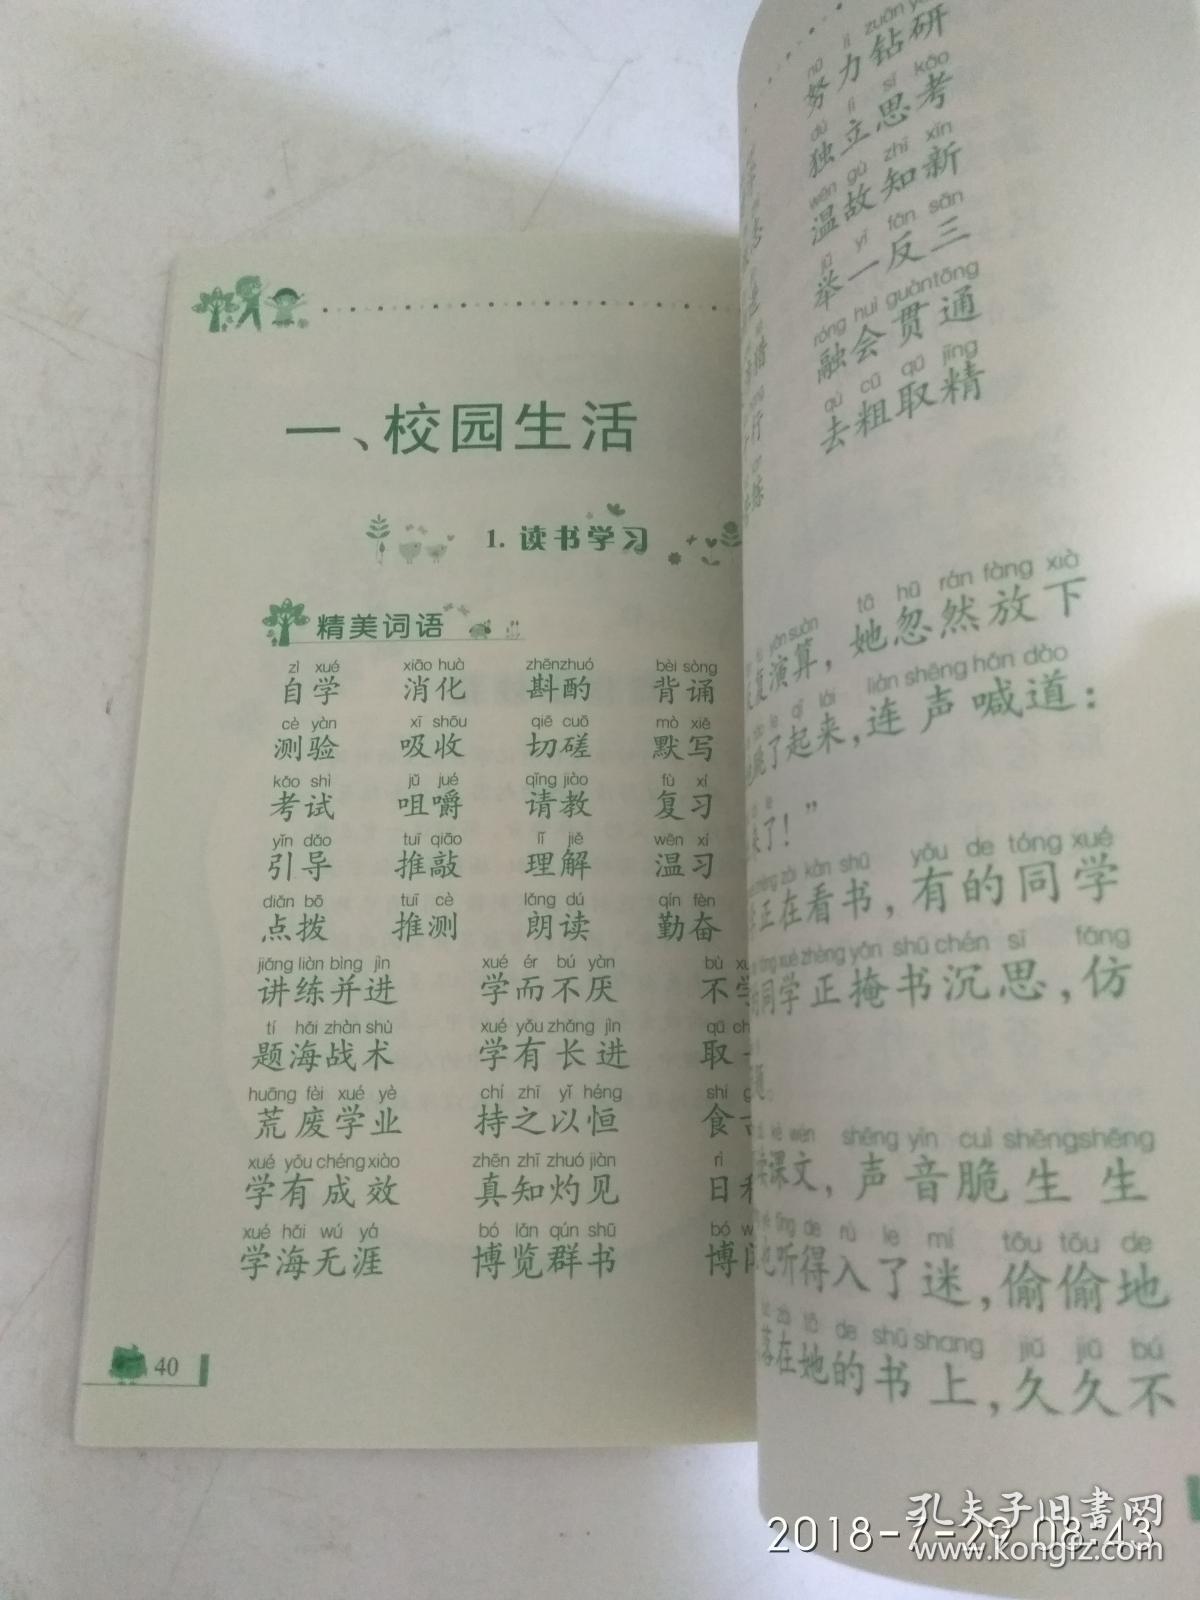 一、校园生活
1. 读书学习
精美词语
zì xué xiāo huà zhēnzhuó bèi sòng
自学 消化 斟酌 背诵
cè yàn xī shōu qiē cuō mò xiě
测验 吸收 切磋 默写
kǎo shì jǔ jué qǐng jiào fù xí
考试 咀嚼 请教 复习
yǐn dǎo tuī qiāo lǐ jiě wēn xí
引导 推敲 理解 温习
diǎn bō tuī cè lǎng dú qín fèn
点拨 推测 朗读 勤奋
jiǎng liàn bìng jìn xué ér bú yàn bù
讲练并进 学而不厌 不学
tí hǎi zhàn shù xué yǒu zhǎng jìn qǔ
题海战术 学有长进 取
huāng fèi xué yè chí zhī yǐ héng shí
荒废学业 持之以恒 食
xué yǒu chéng xiào zhēn zhī zhuó jiàn rì
学有成效 真知灼见 日
xué hǎi wú yá bó lǎn qún shū bó
学海无涯 博览群书 博
40
nǔ lì zuān
努力钻研
dú lì sī kǎo
独立思考
wēn gù zhī xīn
温故知新
jǔ yī fǎn sān
举一反三
róng huì guàntōng
融会贯通
qù cū qǔ jīng
去粗取精
yǎn suàn tā hū rán fàng xià
复演算，她忽然放下
le qǐ lái lián shēng hǎn dào
跳了起来，连声喊道：
来了！”
zhèng zài kàn shū yǒu de tóng xué
正在看书，有的同学
tóng xué zhèng yǎn shū chén sī fǎng
同学正掩书沉思，仿
题。
kè wén shēng yīn cuì shēngshēng
读课文，声音脆生生
tīng de rù le mí tōu tōu de
也听得入了迷，偷偷地
luò zài tā de shū shang jiǔ jiǔ bù
落在她的书上，久久不
孔夫子旧书网
www.kongfz.com
2018-7-29 08:43